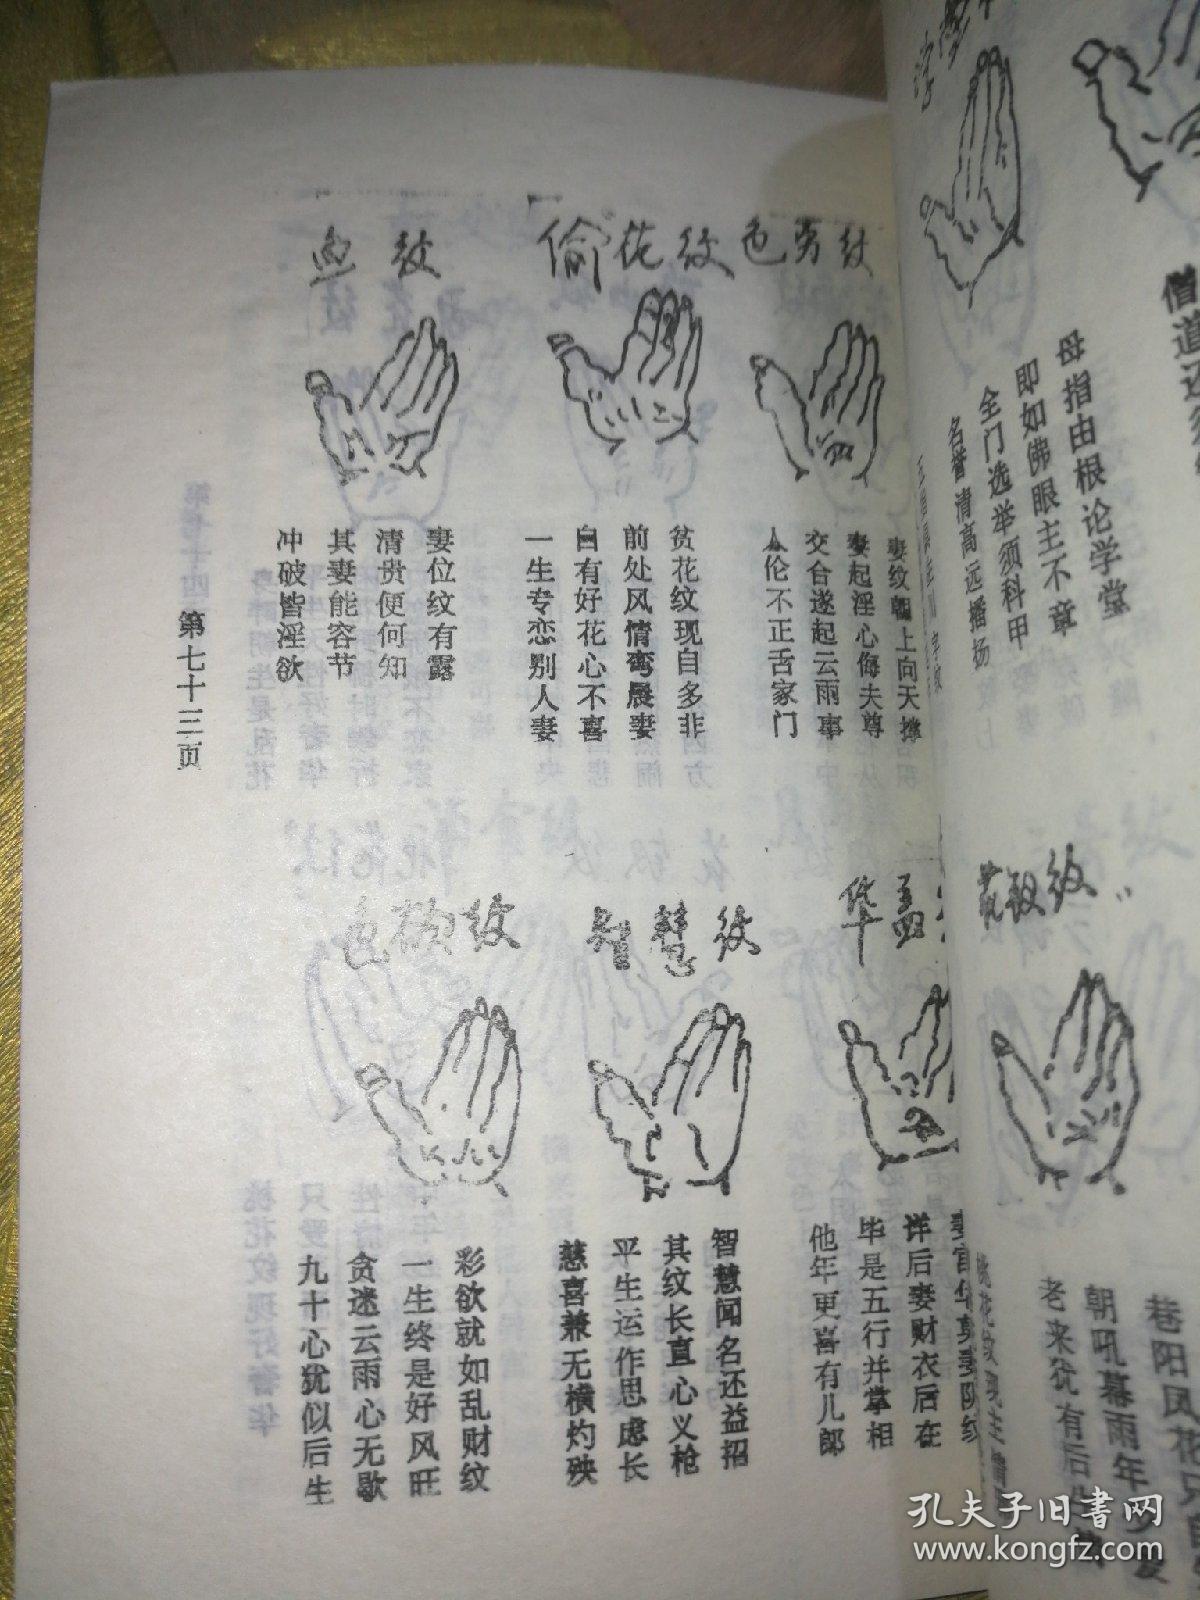 色劳纹
妻纹朝上向天撑
妻起淫心侮夫尊
交合遂起云雨事
人伦不正舌家门
偷花纹
贫花纹现自多非
前处风情弯屡妻
自有好花心不喜
一生专恋别人妻
鱼纹
妻位纹有露
清贵便何知
其妻能容节
冲破皆淫欲
第七十三页
华盖
详后妻财衣后在
毕是五行并掌相
他年更喜有儿郎
智慧纹
智慧闻名还益招
其纹长直心义枪
平生运作思虑长
慈喜兼无横灼殃
色欲纹
彩欲就如乱财纹
一生终是好风旺
贪迷云雨心无歇
九十心犹似后生
母指由根论学堂
即如佛眼主不章
全门选举须科甲
名誉清高远播扬
僧道还
巷阳风花
朝吼暮雨年少
老来犹有后
孔夫子旧书网
www.kongfz.com